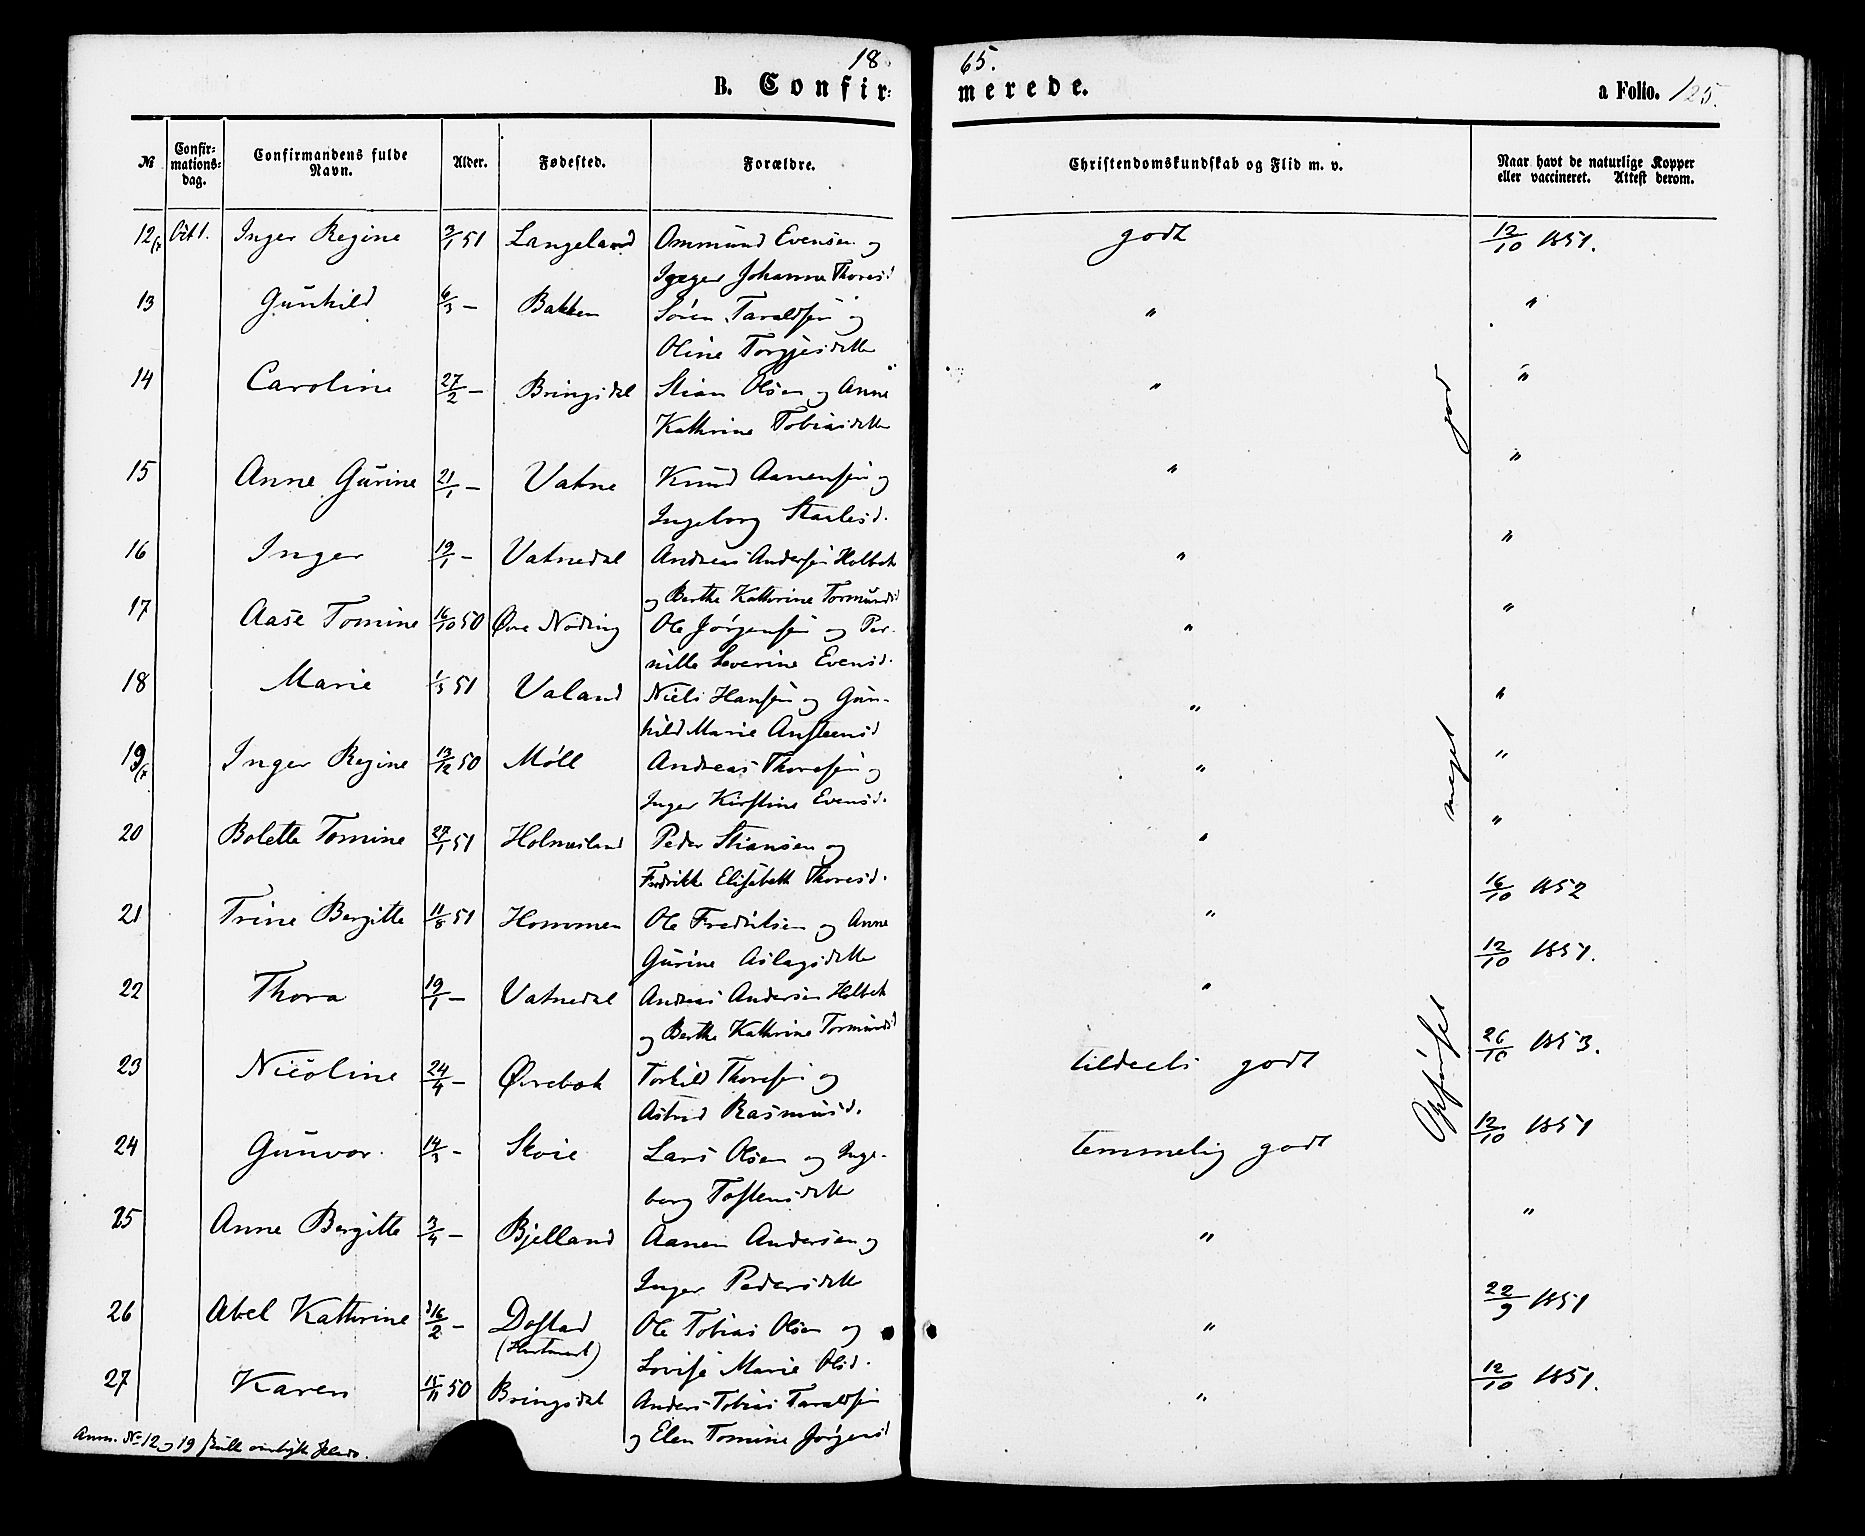 18 65.
B. Confir: merede. a Folio. 125.
№ Confir-mations-dag. Confirmandens fulde Navn. Alder. Fødested. Forældre. Christendomskundskab og Flid m. v. Naar havt de naturlige Kopper eller vaccineret. Attest derom.
12 Oct 1. Inger Regine 3/1 51 Langeland Ommund Evensen og godt 12/10 1851.
Inger Johanne Thoresd
13 Gunhild 6/3 - Bakken Søren Taraldsen og " "
Oline Torgjesdatter
14 Caroline 27/2 - Bringsdal Stian Olsen og Anne " "
Kathrine Tobiasdatter
15 Anne Gurine 21/1 - Vatne Knud Aanensen og " "
Ingeborg Starlesd.
16 Inger 19/1 - Vatnedal Andreas Andersen Holbek " "
og Berthe Kathrine Tormundsd
17 Aase Tomine 16/10 50 Øvre Noding Ole Jørgensen og Per- " "
nille Severine Evensd.
18 Marie 1/3 51 Valand Niels Hansen og Gun- " "
hild Marie Austeensd
19 Inger Regine 13/12 50 Möll Andreas Thoresen og " "
Inger Kirstine Evensd.
20 Bolette Tomine 27/1 51 Holmesland Peder Stiansen og " "
Fredrikke Elisabeth Thoresd.
21 Trine Bergitte 11/8 51 Hommen Ole Fredriksen og Anne " 16/10 1852
Gurine Aslagsdatter
22 Thora 19/1 - Vatnedal Andreas Andersen Holbek " 12/10 1851.
og Berthe Kathrine Tormundsd
23 Nicoline 24/4 - Øvrebøk Torkild Thoresen og tildeels godt 26/10 1853.
Astrid Rasmusd.
24 Gunvor 14/3 - Skoie Lars Olsen og Inge- temmelig godt 12/10 1851
borg Tostensdatter
25 Anne Bergitte 3/4 - Bjelland Aanen Andersen og " "
Inger Pedersdatter
26 Abel Kathrine 16/2 - Dostad Ole Tobias Olsen og " 22/9 1851
Lovise Marie Olsd.
27 Karen 15/11 50 Bringsdal Anders Tobias Taraldsen " 12/10 1851.
og Elen Tomine Jørgensd
Opførsel meget god
Anm. № 12 og 19